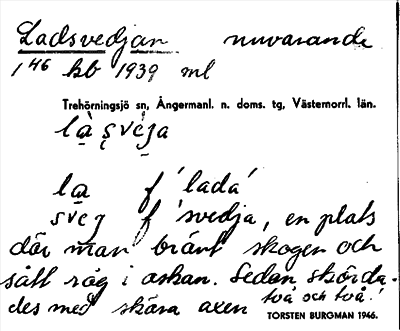 Ladsvedjan nuvarande
1⁴⁶ hb 1939 ml
Trehörningsjö sn, Ångermanl. n. doms. tg, Västernorrl. län.
la̱ s̨vèja
la̱ f 'lada'
sveg f 'svedja, en plats
där man bränt skogen och
sått råg i askan. Sedan skörda-
des med skära axen två och två.'
TORSTEN BURGMAN 1946.